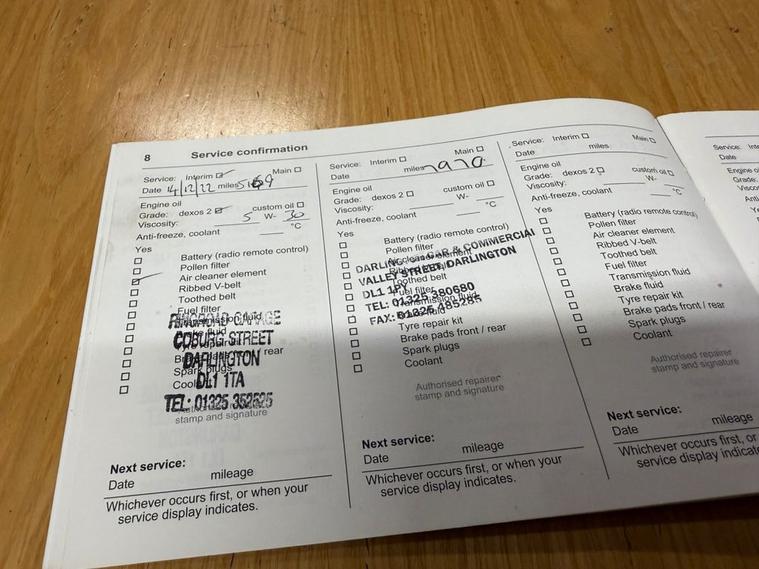 8 Service confirmation
Service: Interim Main
Date 14/12/22 miles
Engine oil
Grade: dexos 2 custom oil
Viscosity: 5 W- 30
Anti-freeze, coolant °C
Yes
Battery (radio remote control)
Pollen filter
Air cleaner element
Ribbed V-belt
Toothed belt
Fuel filter
RINGROAD GARAGE
COBURG STREET
DARLINGTON
DL1 1TA
TEL: 01325 353525
rear
Spark plugs
Coolant
stamp and signature
Next service:
Date mileage
Whichever occurs first, or when your
service display indicates.
Service: Interim Main
Date miles 7970
Engine oil
Grade: dexos 2 custom oil
Viscosity: W-
Anti-freeze, coolant °C
Yes
Battery (radio remote control)
Pollen filter
Air cleaner element
CAR & COMMERCIAL
VALLEY STREET, DARLINGTON
DL1
TEL: 01325 380680
FAX: 01325 485285
Toothed belt
Fuel filter
Transmission fluid
Tyre repair kit
Brake pads front / rear
Spark plugs
Coolant
Authorised repairer
stamp and signature
Next service:
Date mileage
Whichever occurs first, or when your
service display indicates.
Service: Interim Main
Date miles
Engine oil
Grade: dexos 2 custom oil
Viscosity: W-
Anti-freeze, coolant °C
Yes
Battery (radio remote control)
Pollen filter
Air cleaner element
Ribbed V-belt
Toothed belt
Fuel filter
Transmission fluid
Brake fluid
Tyre repair kit
Brake pads front / rear
Spark plugs
Coolant
Authorised repairer
stamp and signature
Next service:
Date mileage
Whichever occurs first, or
service display
Date
Engine oil
Grade:
Yes